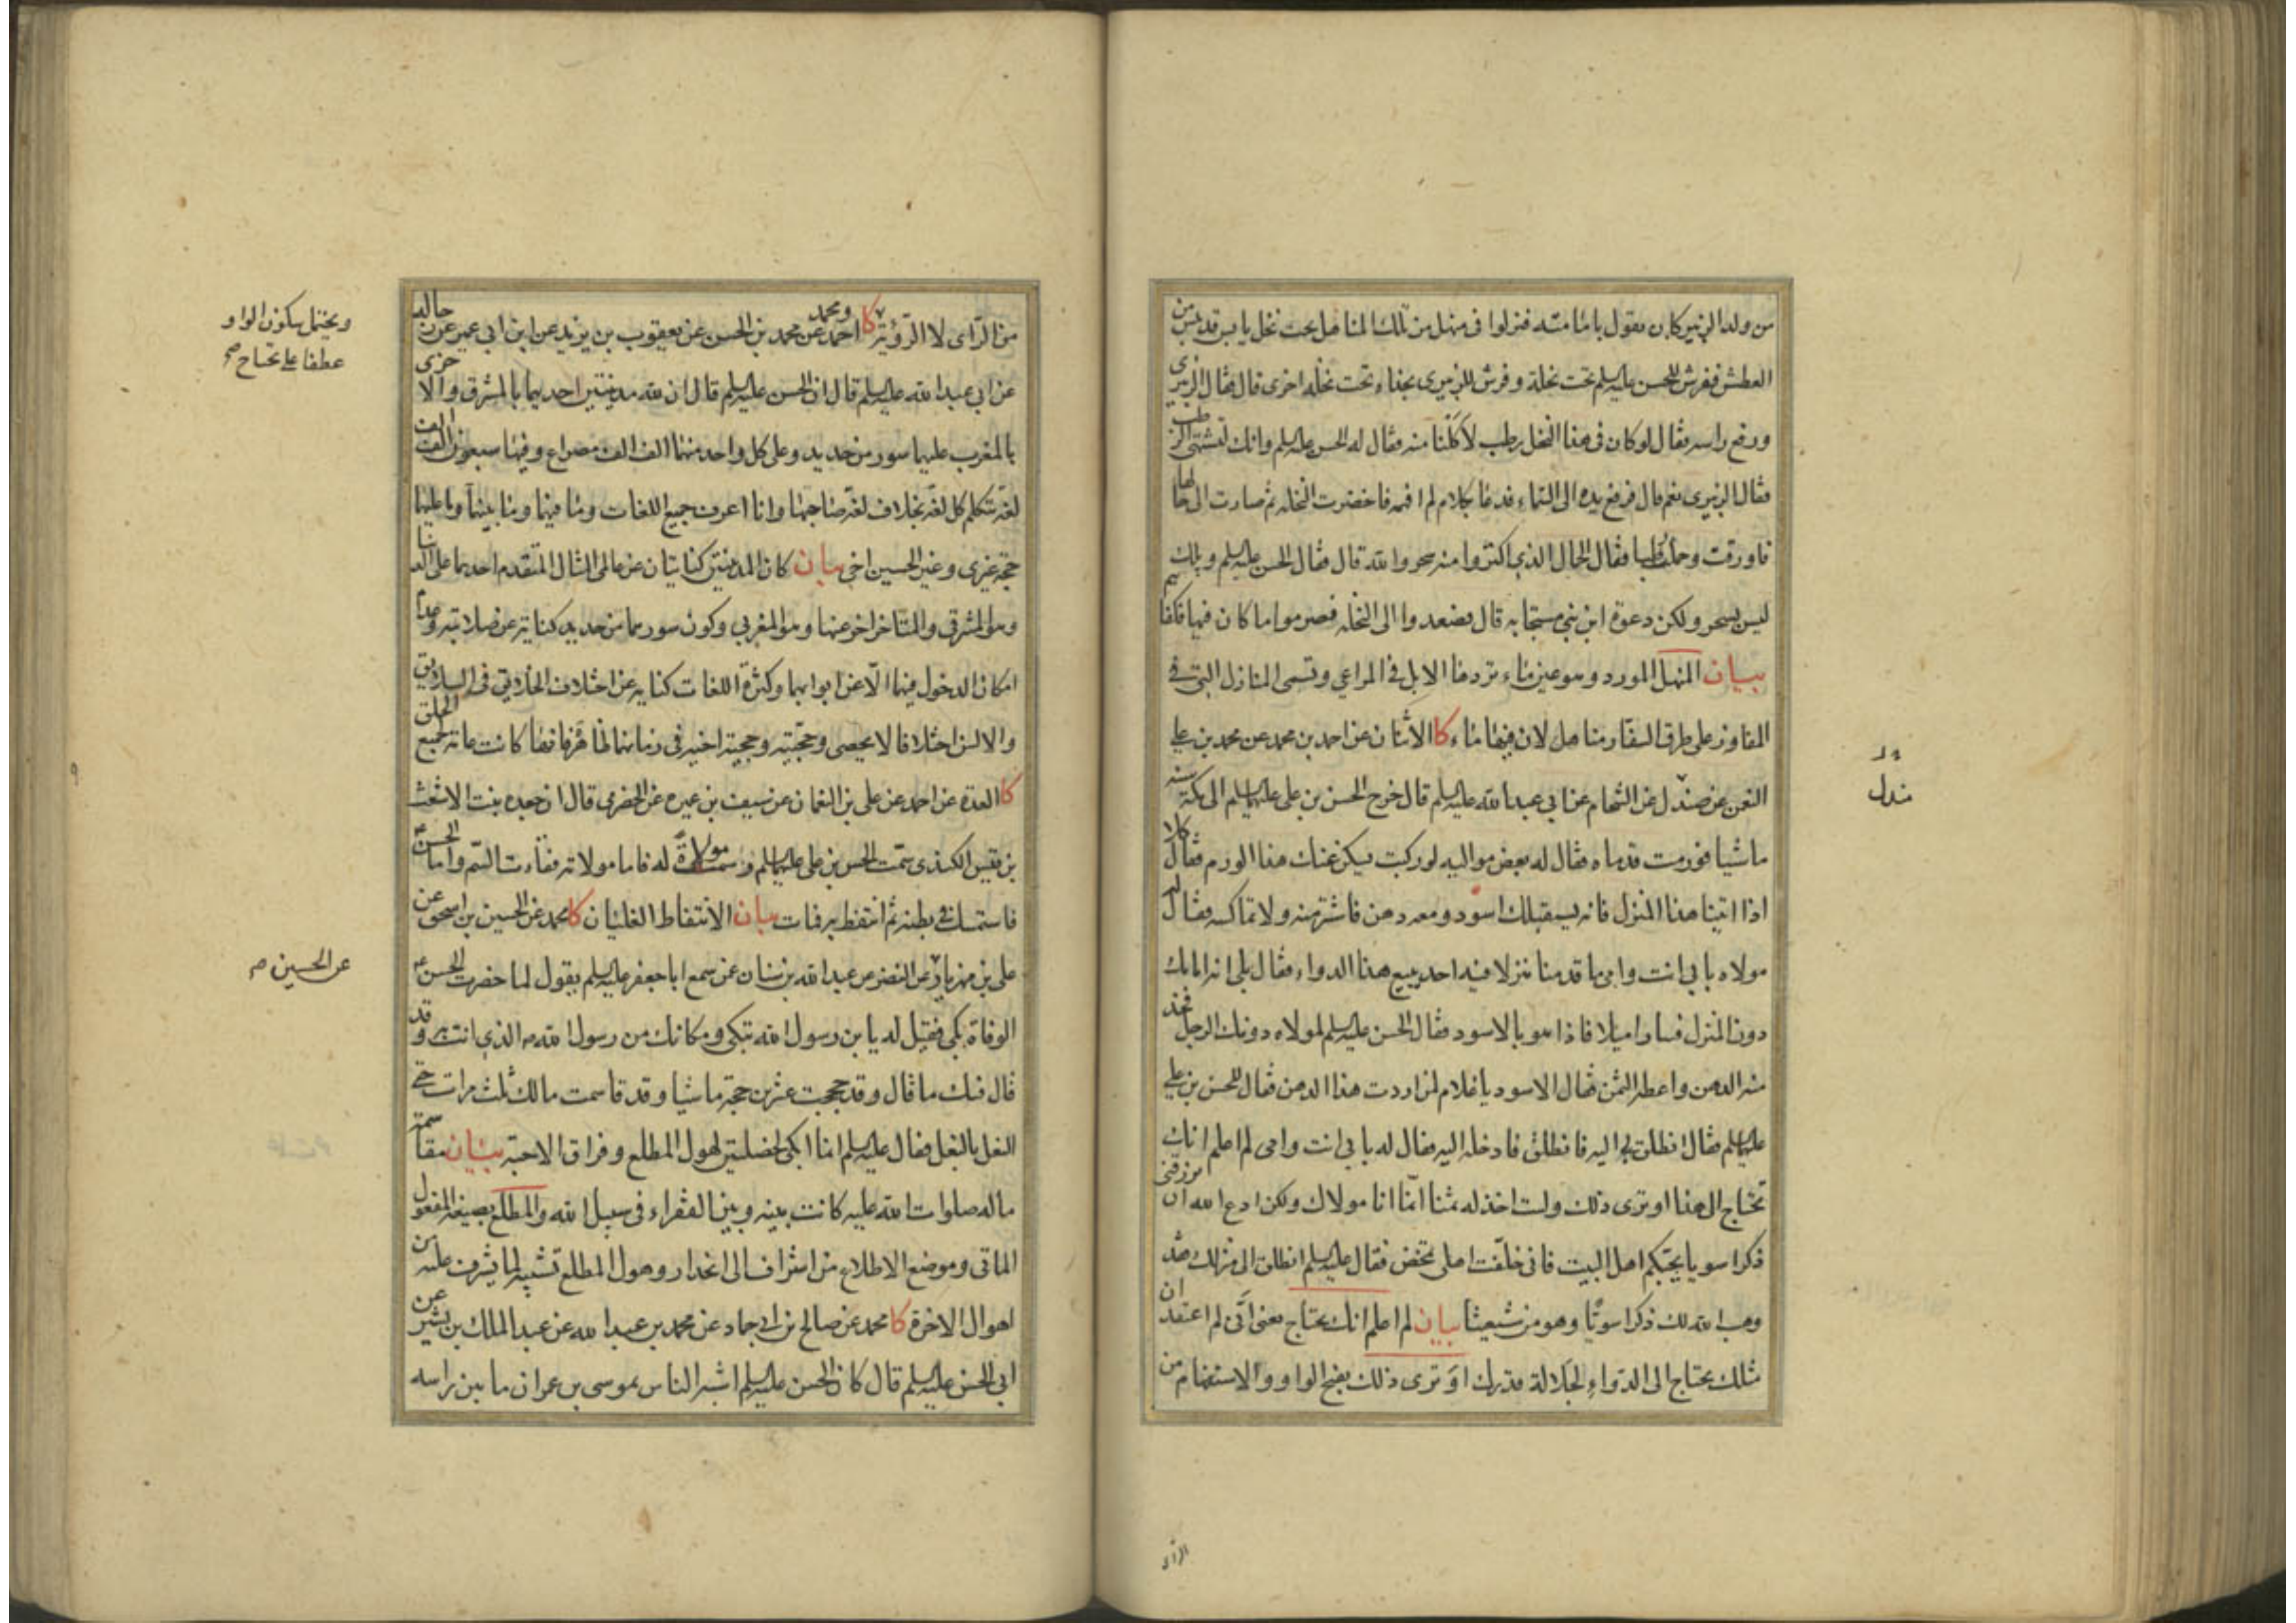 من ولد الزبير كان يقول بامامته فنزلوا فى منهل من تلك المناهل تحت نخل يابس قد يبس من
العطش ففرش للحسن عليه السلم تحت نخلة وفرش للزبيرى بحذاه تحت نخلة اخرى قال فقال الزبيرى
ورفع راسه فقال لو كان فى هذا النخل رطب لاكلنا منه فقال له الحسن عليه السلم وانك لتشتهى الرطب
فقال الزبيرى نعم قال فرفع يده الى السماء فدعا بكلام لم افهمه فاخضرت النخلة ثم صارت الى حالها
فاورقت وحملت رطبا فقال الجمال الذي اكتروا منه سحر والله قال فقال الحسن عليه السلم ويلك
ليس بسحر ولكن دعوة ابن نبي مستجابه قال فصعدوا الى النخلة فصرموا ما كان فيها فكفاهم
بيان المنهل المورد وهو عين ماء ترده الابل فى المراعي وتسمى المنازل التي فى
المفاوز على طرق السفار مناهل لان فيها ماء كا الاثنان عن احمد بن محمد عن محمد بن علي
النعمن عن صندل عن الشحام عن ابي عبدالله عليه السلم قال خرج الحسن بن علي عليهما السلم الى مكة سنة
ماشيا فورمت قدماه فقال له بعض مواليه لو ركبت ليسكن عنك هذا الورم فقال كلا
اذا اتينا هذا المنزل فانه يستقبلك اسود ومعه دهن فاشتر منه ولا تماكسه فقال له
مولاه بابي انت وامي ما قدمنا منزلا فيه احد يبيع هذا الدواء فقال بلى انه امامك
دون المنزل فسارا ميلا فاذا هو بالاسود فقال الحسن عليه السلم لمولاه دونك الرجل فخذ
منه الدهن واعطه الثمن فقال الاسود يا غلام لمن اردت هذا الدهن فقال للحسن بن علي
عليهما السلم فقال انطلق بي اليه فانطلق فادخله اليه فقال له بابي انت وامي لم اعلم انك
تحتاج الى هذا او ترى ذلك ولست اخذ له ثمنا انما انا مولاك ولكن ادع الله ان يرزقنى
ذكرا سويا يحبكم اهل البيت فاني خلفت اهلي تمخض فقال عليه السلم انطلق الى منزلك فقد
وهب الله لك ذكرا سويا وهو من شيعتنا بيان لم اعلم انك تحتاج يعنى اني لم اعتقد ان
مثلك يحتاج الى الدواء لجلالة قدرك او ترى ذلك بفتح الواو والاستفهام من
صندل
من الراى لا الرؤية كا احمد ومحمد عن محمد بن الحسن عن يعقوب بن يزيد عن ابن ابي عمير عن رجاله
عن ابي عبدالله عليه السلم قال ان الحسن عليه السلم قال ان لله مدينتين احديهما بالمشرق والاخرى
بالمغرب عليهما سور من حديد وعلى كل واحد منهما الف الف مصراع وفيها سبعون الف الف
لغة تتكلم كل لغة بخلاف لغة صاحبها وانا اعرف جميع اللغات وما فيهما وما بينهما وما عليهما
حجة غيرى وغير الحسين اخي بيان كان المدينتين كنايتان عن عالمى المثال المتقدم احديهما على الدنيا
وهو المشرقي والمتاخر اخر عنها وهو المغربي وكون سورهما من حديد كناية عن صلابته وعدم
امكان الدخول فيهما الا عن ابوابهما وكثرة اللغات كناية عن اختلاف الخلايق فى السلايق
والالسن اختلافا لا يحصى وحجيته وحجية اخيه فى زمانهما ظاهر فانها كانت عامة لجميع الخلق
كا العدة عن احمد عن على بن النعمان عن سيف بن عميره عن الحضرمي قال ان جعده بنت الاشعث
بن قيس الكندى سمت الحسن بن علي عليهما السلم وسمت مولاة له فاما مولاته فقاءت السم واما الحسن
فاستمسك فى بطنه ثم انتفط به فمات بيان الانتفاط الغليان كا محمد عن الحسين بن اسحق عن
على بن مهزيار عن النضر عن عبدالله بن سنان عن سمع ابا جعفر عليه السلم يقول لما حضرت الحسن
الوفاة بكى فقيل له يا بن رسول الله تبكى ومكانك من رسول الله الذي انت به وقد
قال فيك ما قال وقد حججت عشرين حجة ماشيا وقد قاسمت مالك ثلث مرات حتى
النعل بالنعل فقال عليه السلم انما ابكى لخصلتين لهول المطلع وفراق الاحبة بيان مقاسمته
ماله صلوات الله عليه كانت بينه وبين الفقراء فى سبيل الله والمطلع بصيغة المفعول
الماتى وموضع الاطلاع من اشراف الى انحدار وهول المطلع تشبيه لما يشرف عليه من
اهوال الاخرة كا محمد عن صالح بن ابي حماد عن محمد بن عبدالله عن عبدالملك بن بشير عن
ابي الحسن عليه السلم قال كان الحسن عليه السلم اشبه الناس بموسى بن عمران ما بين راسه
ويحتمل سكون الواو
عطفا على تحتاج
عن الحسين